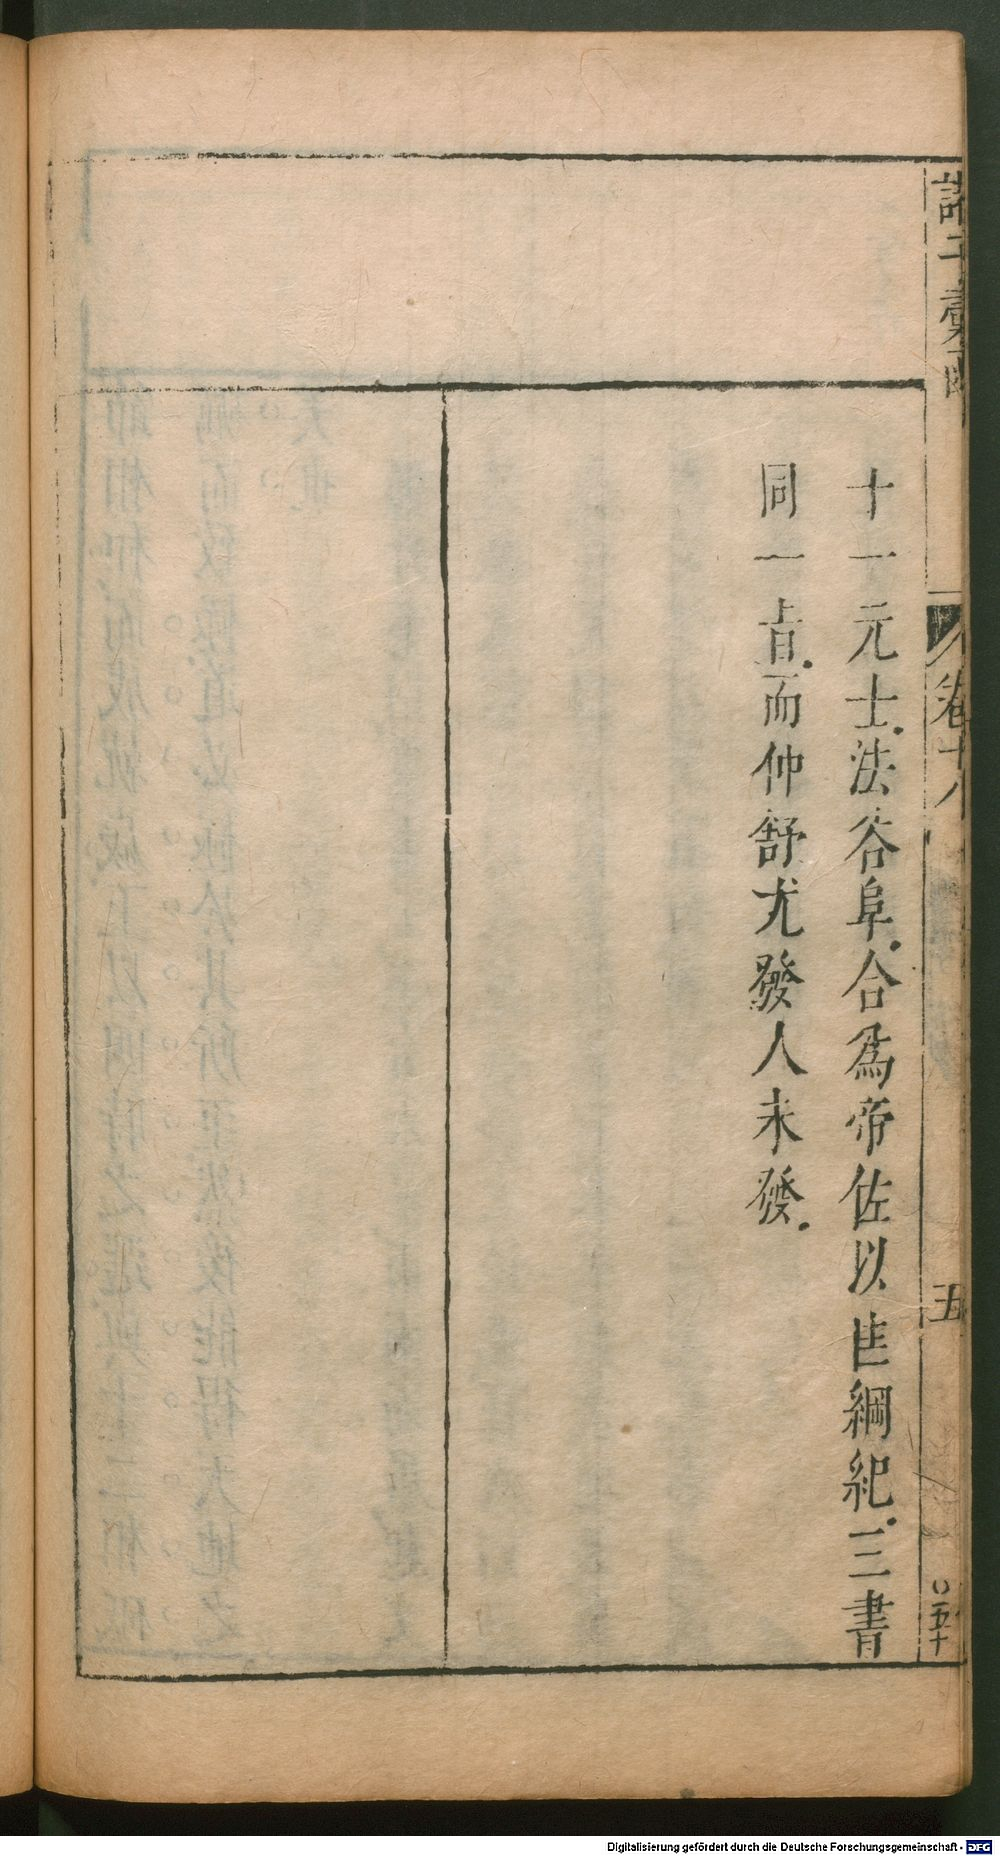 諸子彙函 卷十八 五 五十
十一元士。法谷阜。合爲帝佐以匡綱紀。三書
同一㫖。而仲舒尤發人未發。
Digitalisierung gefördert durch die Deutsche Forschungsgemeinschaft - DFG